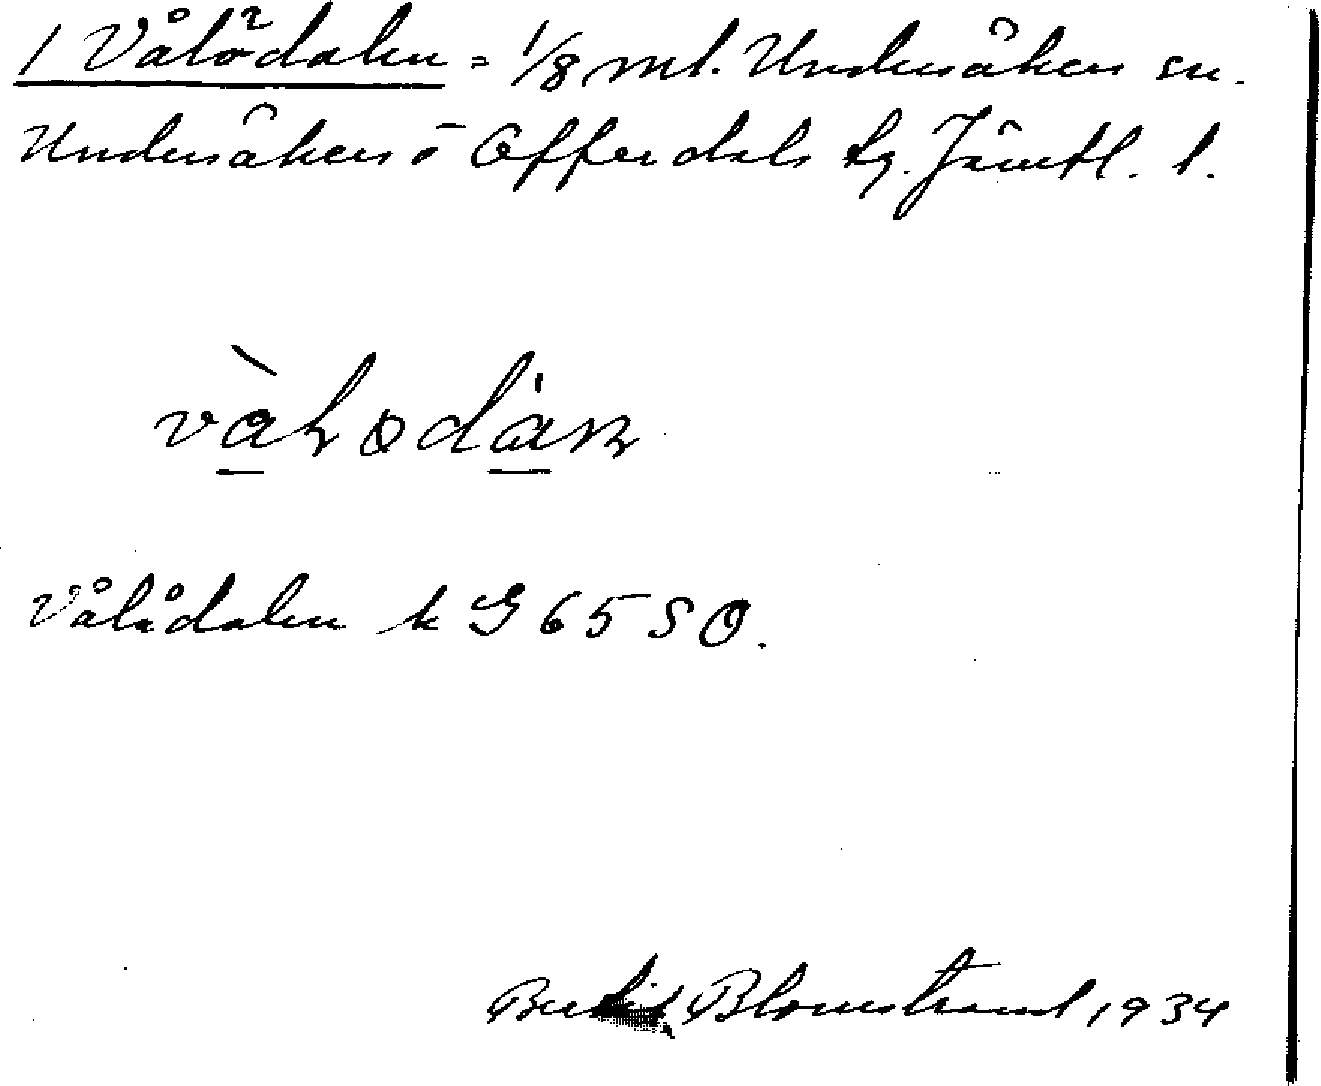 1 Vålödalen = 1/8 mtl. Undersåkers sn.
Undersåkers o Offerdals tg. Jämtl. l.
Vålådalen k G 65 SO.
Bertil Blomstrand 1934